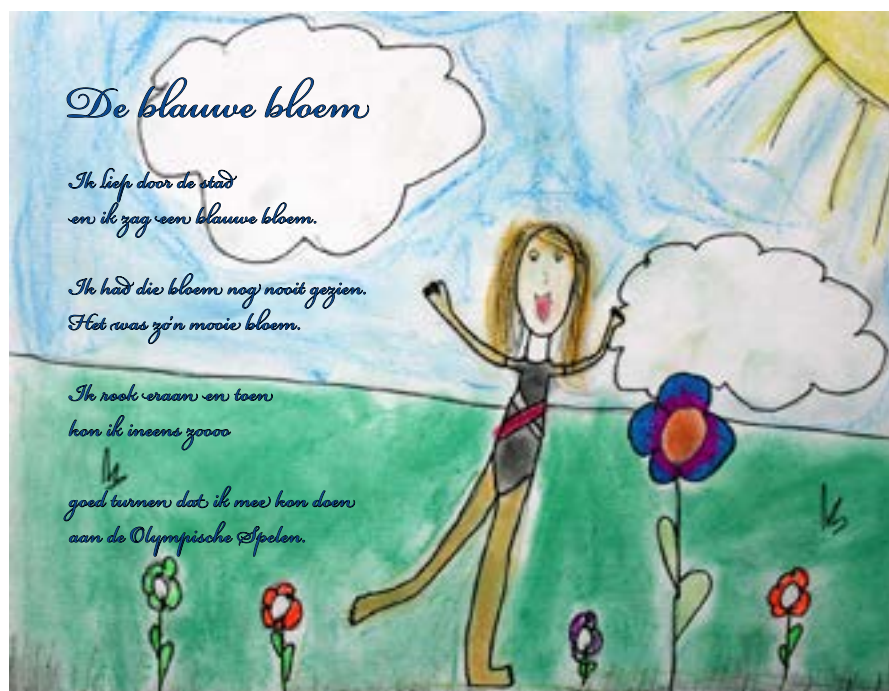 De blauwe bloem
Ik liep door de stad
en ik zag een blauwe bloem.
Ik had die bloem nog nooit gezien.
Het was zo'n mooie bloem.
Ik rook eraan en toen
kon ik ineens zoooo
goed turnen dat ik mee kon doen
aan de Olympische Spelen.